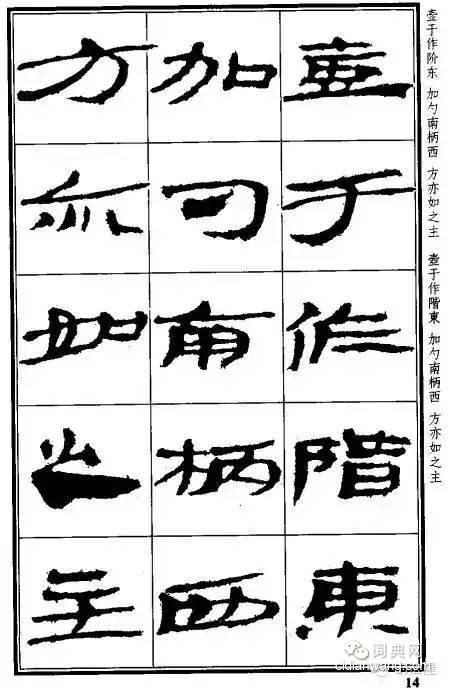 壺于作階東
加勺南柄西
方亦如之主
壶于作阶东 加勺南柄西 方亦如之主 壺于作階東 加勺南柄西 方亦如之主
词典网
cidianwang.com
14